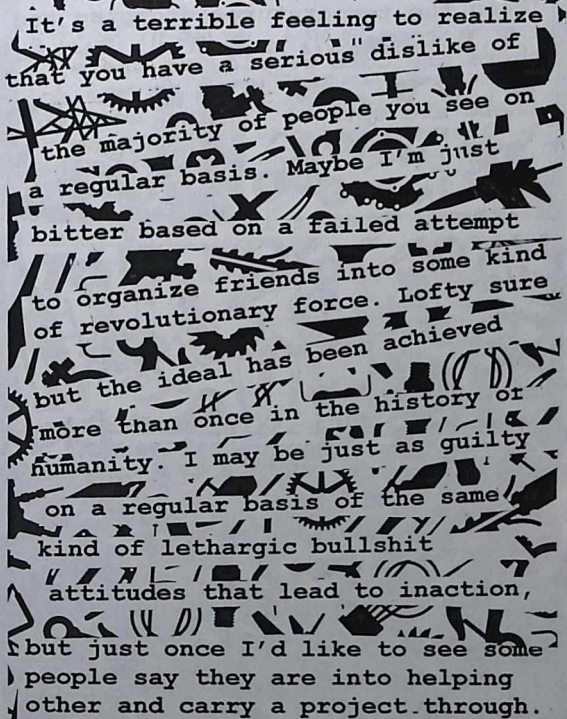 It's a terrible feeling to realize
that you have a serious dislike of
the majority of people you see on
a regular basis. Maybe I'm just
bitter based on a failed attempt
to organize friends into some kind
of revolutionary force. Lofty sure
but the ideal has been achieved
more than once in the history or
humanity. I may be just as guilty
on a regular basis of the same
kind of lethargic bullshit
attitudes that lead to inaction,
but just once I'd like to see some
people say they are into helping
other and carry a project through.